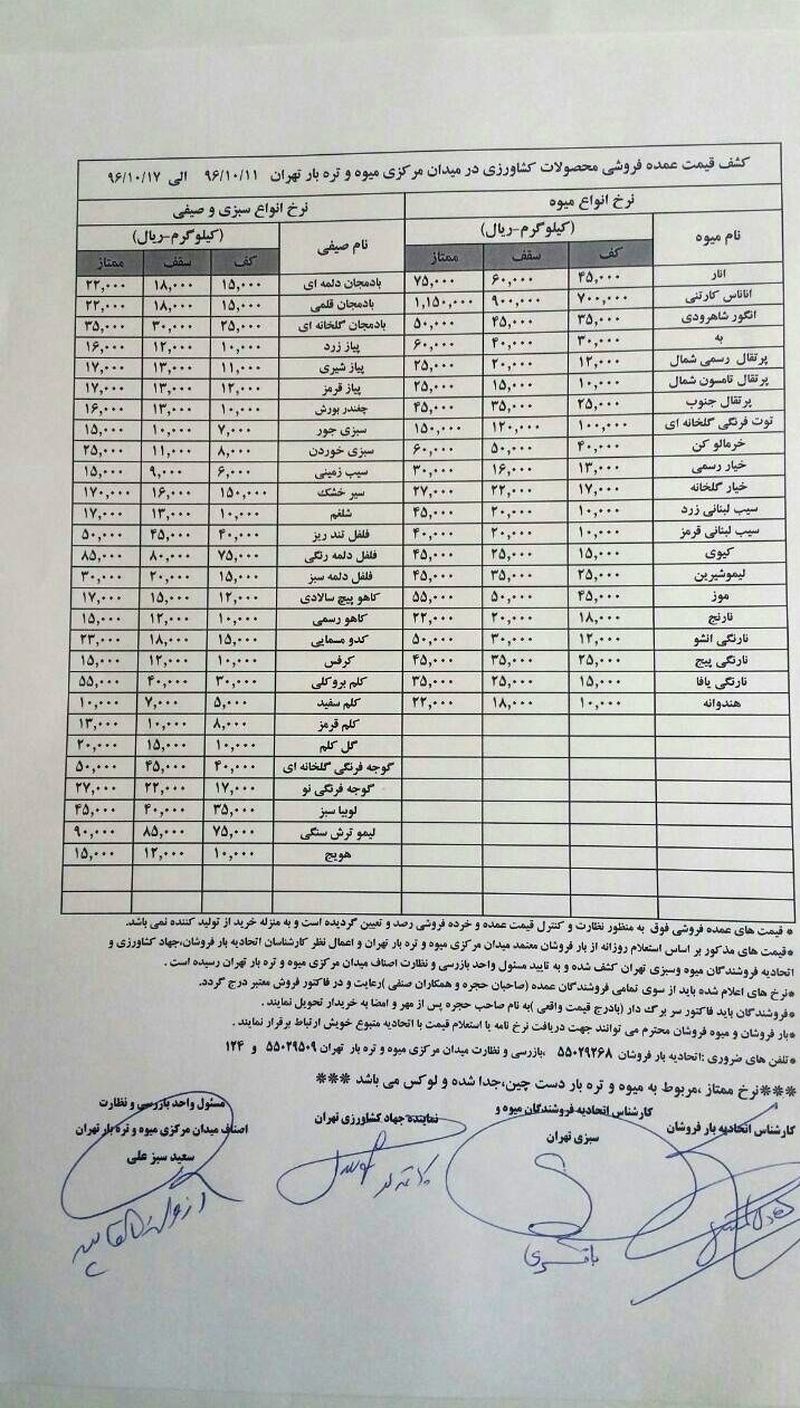 کشف قیمت عمده فروشی محصولات کشاورزی در میدان مرکزی میوه و تره بار تهران ۹۶/۱۰/۱۱ الی ۹۶/۱۰/۱۷
نرخ انواع میوه نرخ انواع سبزی و صیفی
نام میوه (کیلوگرم-ریال) نام صیفی (کیلوگرم-ریال)
کف سقف ممتاز کف سقف ممتاز
انار ۴۵,۰۰۰ ۶۰,۰۰۰ ۷۵,۰۰۰ بادمجان دلمه ای ۱۵,۰۰۰ ۱۸,۰۰۰ ۲۲,۰۰۰
اناناس کارتنی ۷۰۰,۰۰۰ ۹۰۰,۰۰۰ ۱,۱۵۰,۰۰۰ بادمجان قلمی ۱۵,۰۰۰ ۱۸,۰۰۰ ۲۲,۰۰۰
انگور شاهرودی ۳۵,۰۰۰ ۴۵,۰۰۰ ۵۰,۰۰۰ بادمجان گلخانه ای ۲۵,۰۰۰ ۳۰,۰۰۰ ۳۵,۰۰۰
به ۳۰,۰۰۰ ۴۰,۰۰۰ ۶۰,۰۰۰ پیاز زرد ۱۰,۰۰۰ ۱۲,۰۰۰ ۱۶,۰۰۰
پرتقال رسمی شمال ۱۲,۰۰۰ ۲۰,۰۰۰ ۲۵,۰۰۰ پیاز شیری ۱۱,۰۰۰ ۱۳,۰۰۰ ۱۷,۰۰۰
پرتقال تامسون شمال ۱۰,۰۰۰ ۱۵,۰۰۰ ۲۵,۰۰۰ پیاز قرمز ۱۲,۰۰۰ ۱۳,۰۰۰ ۱۷,۰۰۰
پرتقال جنوب ۲۵,۰۰۰ ۳۵,۰۰۰ ۴۵,۰۰۰ چغندر بورش ۱۰,۰۰۰ ۱۳,۰۰۰ ۱۶,۰۰۰
توت فرنگی گلخانه ای ۱۰۰,۰۰۰ ۱۲۰,۰۰۰ ۱۵۰,۰۰۰ سبزی جور ۷,۰۰۰ ۱۰,۰۰۰ ۱۵,۰۰۰
خرمالو کن ۴۰,۰۰۰ ۵۰,۰۰۰ ۶۰,۰۰۰ سبزی خوردن ۸,۰۰۰ ۱۱,۰۰۰ ۲۵,۰۰۰
خیار رسمی ۱۳,۰۰۰ ۱۶,۰۰۰ ۳۰,۰۰۰ سیب زمینی ۶,۰۰۰ ۹,۰۰۰ ۱۵,۰۰۰
خیار گلخانه ۱۷,۰۰۰ ۲۲,۰۰۰ ۲۷,۰۰۰ سیر خشک ۱۵۰,۰۰۰ ۱۶,۰۰۰ ۱۷۰,۰۰۰
سیب لبنانی زرد ۱۰,۰۰۰ ۲۰,۰۰۰ ۴۵,۰۰۰ شلغم ۱۰,۰۰۰ ۱۳,۰۰۰ ۱۷,۰۰۰
سیب لبنانی قرمز ۱۰,۰۰۰ ۲۰,۰۰۰ ۴۰,۰۰۰ فلفل تند ریز ۴۰,۰۰۰ ۴۵,۰۰۰ ۵۰,۰۰۰
کیوی ۱۵,۰۰۰ ۲۵,۰۰۰ ۴۵,۰۰۰ فلفل دلمه رنگی ۷۵,۰۰۰ ۸۰,۰۰۰ ۸۵,۰۰۰
لیموشیرین ۲۵,۰۰۰ ۳۵,۰۰۰ ۴۵,۰۰۰ فلفل دلمه سبز ۱۵,۰۰۰ ۲۰,۰۰۰ ۳۰,۰۰۰
موز ۴۵,۰۰۰ ۵۰,۰۰۰ ۵۵,۰۰۰ کاهو پیچ سالادی ۱۲,۰۰۰ ۱۵,۰۰۰ ۱۷,۰۰۰
نارنج ۱۸,۰۰۰ ۲۰,۰۰۰ ۲۲,۰۰۰ کاهو رسمی ۱۰,۰۰۰ ۱۲,۰۰۰ ۱۵,۰۰۰
نارنگی انشو ۱۲,۰۰۰ ۳۰,۰۰۰ ۵۰,۰۰۰ کدو مسمایی ۱۵,۰۰۰ ۱۸,۰۰۰ ۲۳,۰۰۰
نارنگی پیج ۲۵,۰۰۰ ۳۵,۰۰۰ ۴۵,۰۰۰ کرفس ۱۰,۰۰۰ ۱۲,۰۰۰ ۱۵,۰۰۰
نارنگی یافا ۱۵,۰۰۰ ۲۵,۰۰۰ ۳۵,۰۰۰ کلم بروکلی ۳۰,۰۰۰ ۴۰,۰۰۰ ۵۵,۰۰۰
هندوانه ۱۰,۰۰۰ ۱۸,۰۰۰ ۲۲,۰۰۰ کلم سفید ۵,۰۰۰ ۷,۰۰۰ ۱۰,۰۰۰
کلم قرمز ۸,۰۰۰ ۱۰,۰۰۰ ۱۳,۰۰۰
گل کلم ۱۰,۰۰۰ ۱۵,۰۰۰ ۲۰,۰۰۰
گوجه فرنگی گلخانه ای ۴۰,۰۰۰ ۴۵,۰۰۰ ۵۰,۰۰۰
گوجه فرنگی نو ۱۷,۰۰۰ ۲۲,۰۰۰ ۲۷,۰۰۰
لوبیا سبز ۳۵,۰۰۰ ۴۰,۰۰۰ ۴۵,۰۰۰
لیمو ترش سنگی ۷۵,۰۰۰ ۸۵,۰۰۰ ۹۰,۰۰۰
هویج ۱۰,۰۰۰ ۱۲,۰۰۰ ۱۵,۰۰۰
* قیمت های عمده فروشی فوق به منظور نظارت و کنترل قیمت عمده و خرده فروشی رصد و تعیین گردیده است و به منزله خرید از تولید کننده نمی باشد.
*قیمت های مذکور بر اساس استعلام روزانه از بار فروشان معتمد میدان مرکزی میوه و تره بار تهران و اعمال نظر کارشناسان اتحادیه بار فروشان،جهاد کشاورزی و
اتحادیه فروشندگان میوه وسبزی تهران کشف شده و به تایید مسئول واحد بازرسی و نظارت اصناف میدان مرکزی میوه و تره بار تهران رسیده است .
*نرخ های اعلام شده باید از سوی تمامی فروشندگان عمده (صاحبان حجره و همکاران صنفی )رعایت و در فاکتور فروش معتبر درج گردد.
*فروشندگان باید فاکتور سر برگ دار (بادرج قیمت واقعی )به نام صاحب حجره پس از مهر و امضا به خریدار تحویل نمایند .
*بار فروشان و میوه فروشان محترم می توانند جهت دریافت نرخ نامه یا استعلام قیمت با اتحادیه متبوع خویش ارتباط برقرار نمایند .
*تلفن های ضروری :اتحادیه بار فروشان ۵۵۰۲۹۲۶۸ ،بازرسی و نظارت میدان مرکزی میوه و تره بار تهران ۵۵۰۲۹۵۰۹ و ۱۲۴
***نرخ ممتاز ،مربوط به میوه و تره بار دست چین،جدا شده و لوکس می باشد ***
کارشناس اتحادیه بار فروشان
کارشناس اتحادیه فروشندگان میوه و
سبزی تهران
نماینده جهاد کشاورزی تهران
مسئول واحد بازرسی و نظارت
اصناف میدان مرکزی میوه و تره بار تهران
سعید سبز علی